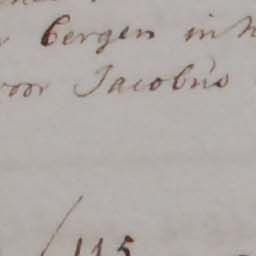 bergen in
voor Jacobus
115